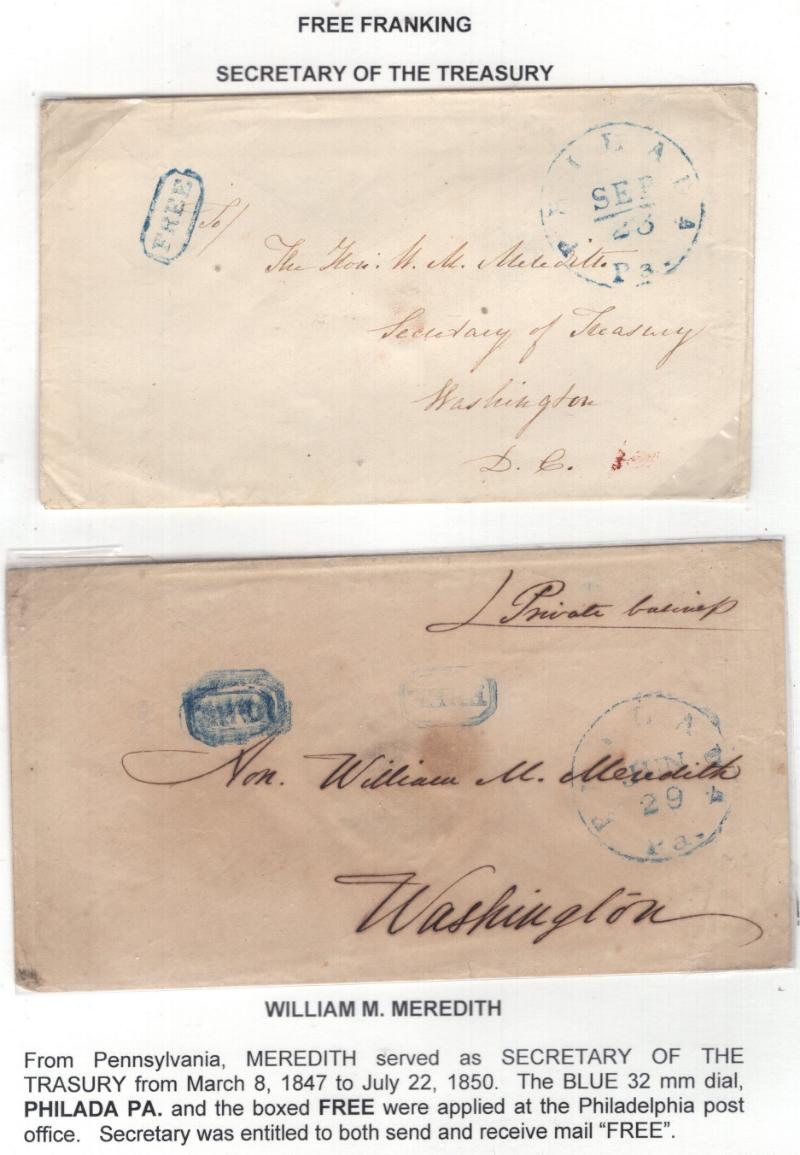 FREE FRANKING
SECRETARY OF THE TREASURY
FREE
PHILADA
SEP
23
Pa.
To/
The Hon. W. M. Meredith
Secretary of Treasury
Washington
D. C.
Private business
FREE
FREE
PHILADA
JUN
29
Pa.
Hon. William M. Meredith
Washington
WILLIAM M. MEREDITH
From Pennsylvania, MEREDITH served as SECRETARY OF THE
TRASURY from March 8, 1847 to July 22, 1850. The BLUE 32 mm dial,
PHILADA PA. and the boxed FREE were applied at the Philadelphia post
office. Secretary was entitled to both send and receive mail “FREE”.